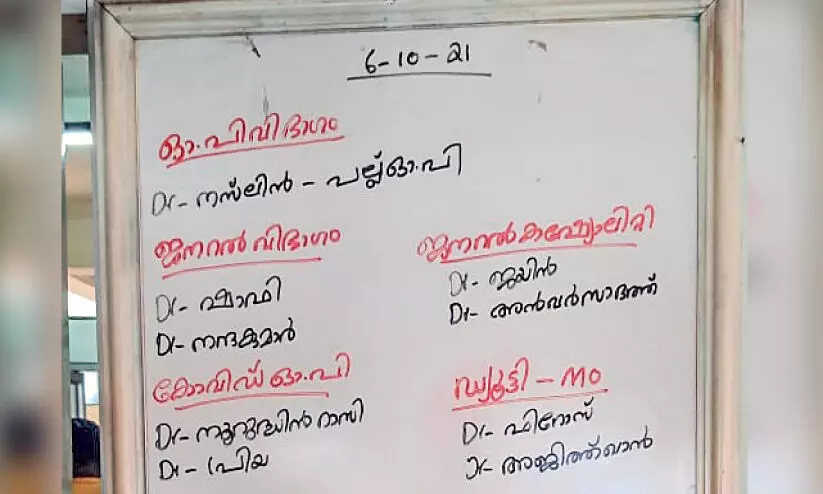 6-10-21
ഓ.പി വിഭാഗം
Dr- നസ്ലിൻ - പല്ല് ഓ.പി
ജനറൽ വിഭാഗം
Dr- ഷാഫി
Dr- നന്ദകുമാർ
കോവിഡ് ഓ.പി
Dr- നൂറുദ്ധീൻ റാസി
Dr- പ്രിയ
ജനറൽ കാഷ്വാലിറ്റി
Dr- ജയിൻ
Dr- അൻവർ സാദത്ത്
ഡ്യൂട്ടി - MO
Dr- ഫിറോസ്
Dr- അജിത്ത്ഖാൻ